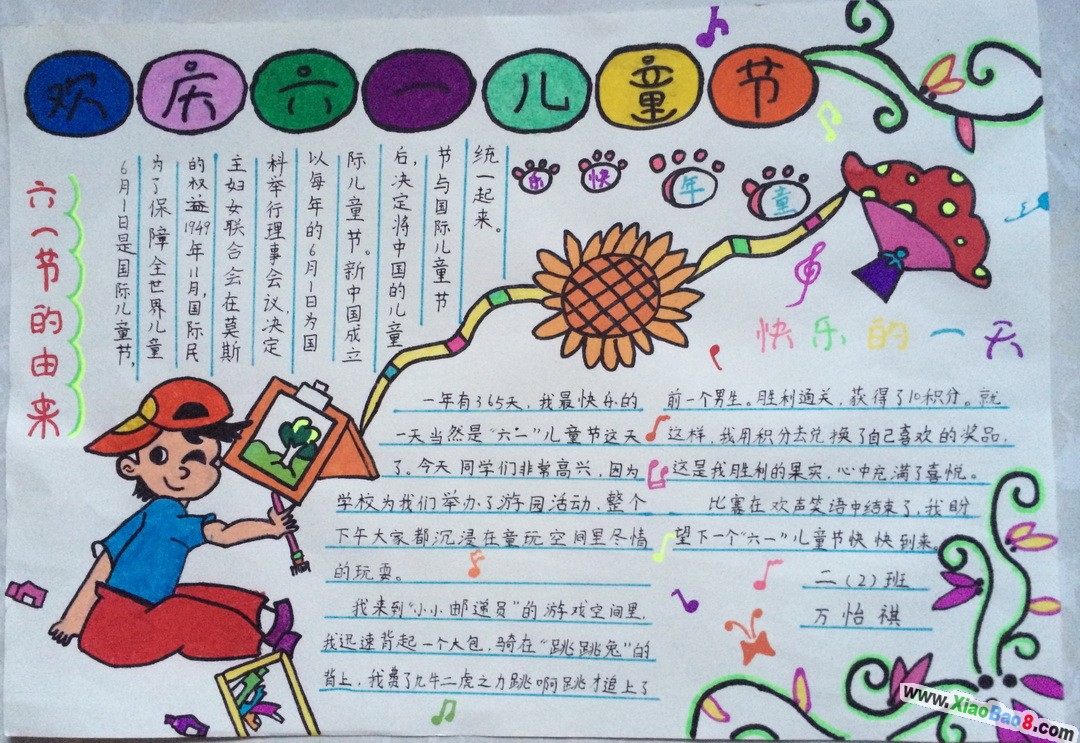 欢庆六一儿童节
六一节的由来
6月1日是国际儿童节,
为了保障全世界儿童
的权益1949年11月,国际民
主妇女联合会在莫斯
科举行理事会议,决定
以每年的6月1日为国
际儿童节。新中国成立
后,决定将中国的儿童
节与国际儿童节
统一起来。
童年快乐
快乐的一天
一年有365天,我最快乐的
一天当然是“六一”儿童节这天
了。今天同学们非常高兴,因为
学校为我们举办了游园活动,整个
下午大家都沉浸在童玩空间里尽情
的玩耍。
我来到“小小邮递员”的游戏空间里,
我迅速背起一个大包,骑在“跳跳兔”的
背上,我费了九牛二虎之力跳啊跳才追上了
前一个男生。胜利通关,获得了10积分。就
这样,我用积分去兑换了自己喜欢的奖品,
这是我胜利的果实,心中充满了喜悦。
比赛在欢声笑语中结束了,我盼
望下一个“六一”儿童节快快到来。
二(2)班
万怡祺
www.XiaoBao8.com